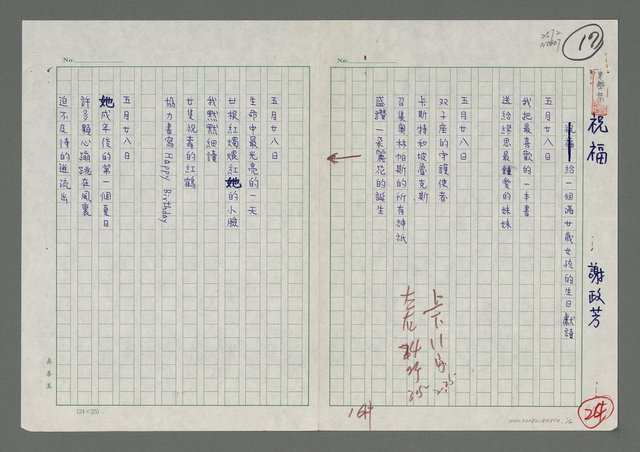 2572
N0607
17
祝福
謝政芳
祝福 給一個滿廿歲女孩的生日獻詩
五月廿八日
我把最喜歡的一本書
送給繆思最鍾愛的妹妹
五月廿八日
双子座的守護使者
卡斯特和坡魯克斯
召集奧林帕斯的所有神祇
盛讚一朵麗花的誕生
No.
五月廿八日
生命中最光亮的一天
廿根紅燭燻紅她的小臉
我默默細讀
廿隻祝壽的紅鶴
協力書寫 Happy Birthday
五月廿八日
她成年後的第一個夏日
許多顆心蹦跳在風裏
迫不及待的迸流出
No.
(24×25)
24